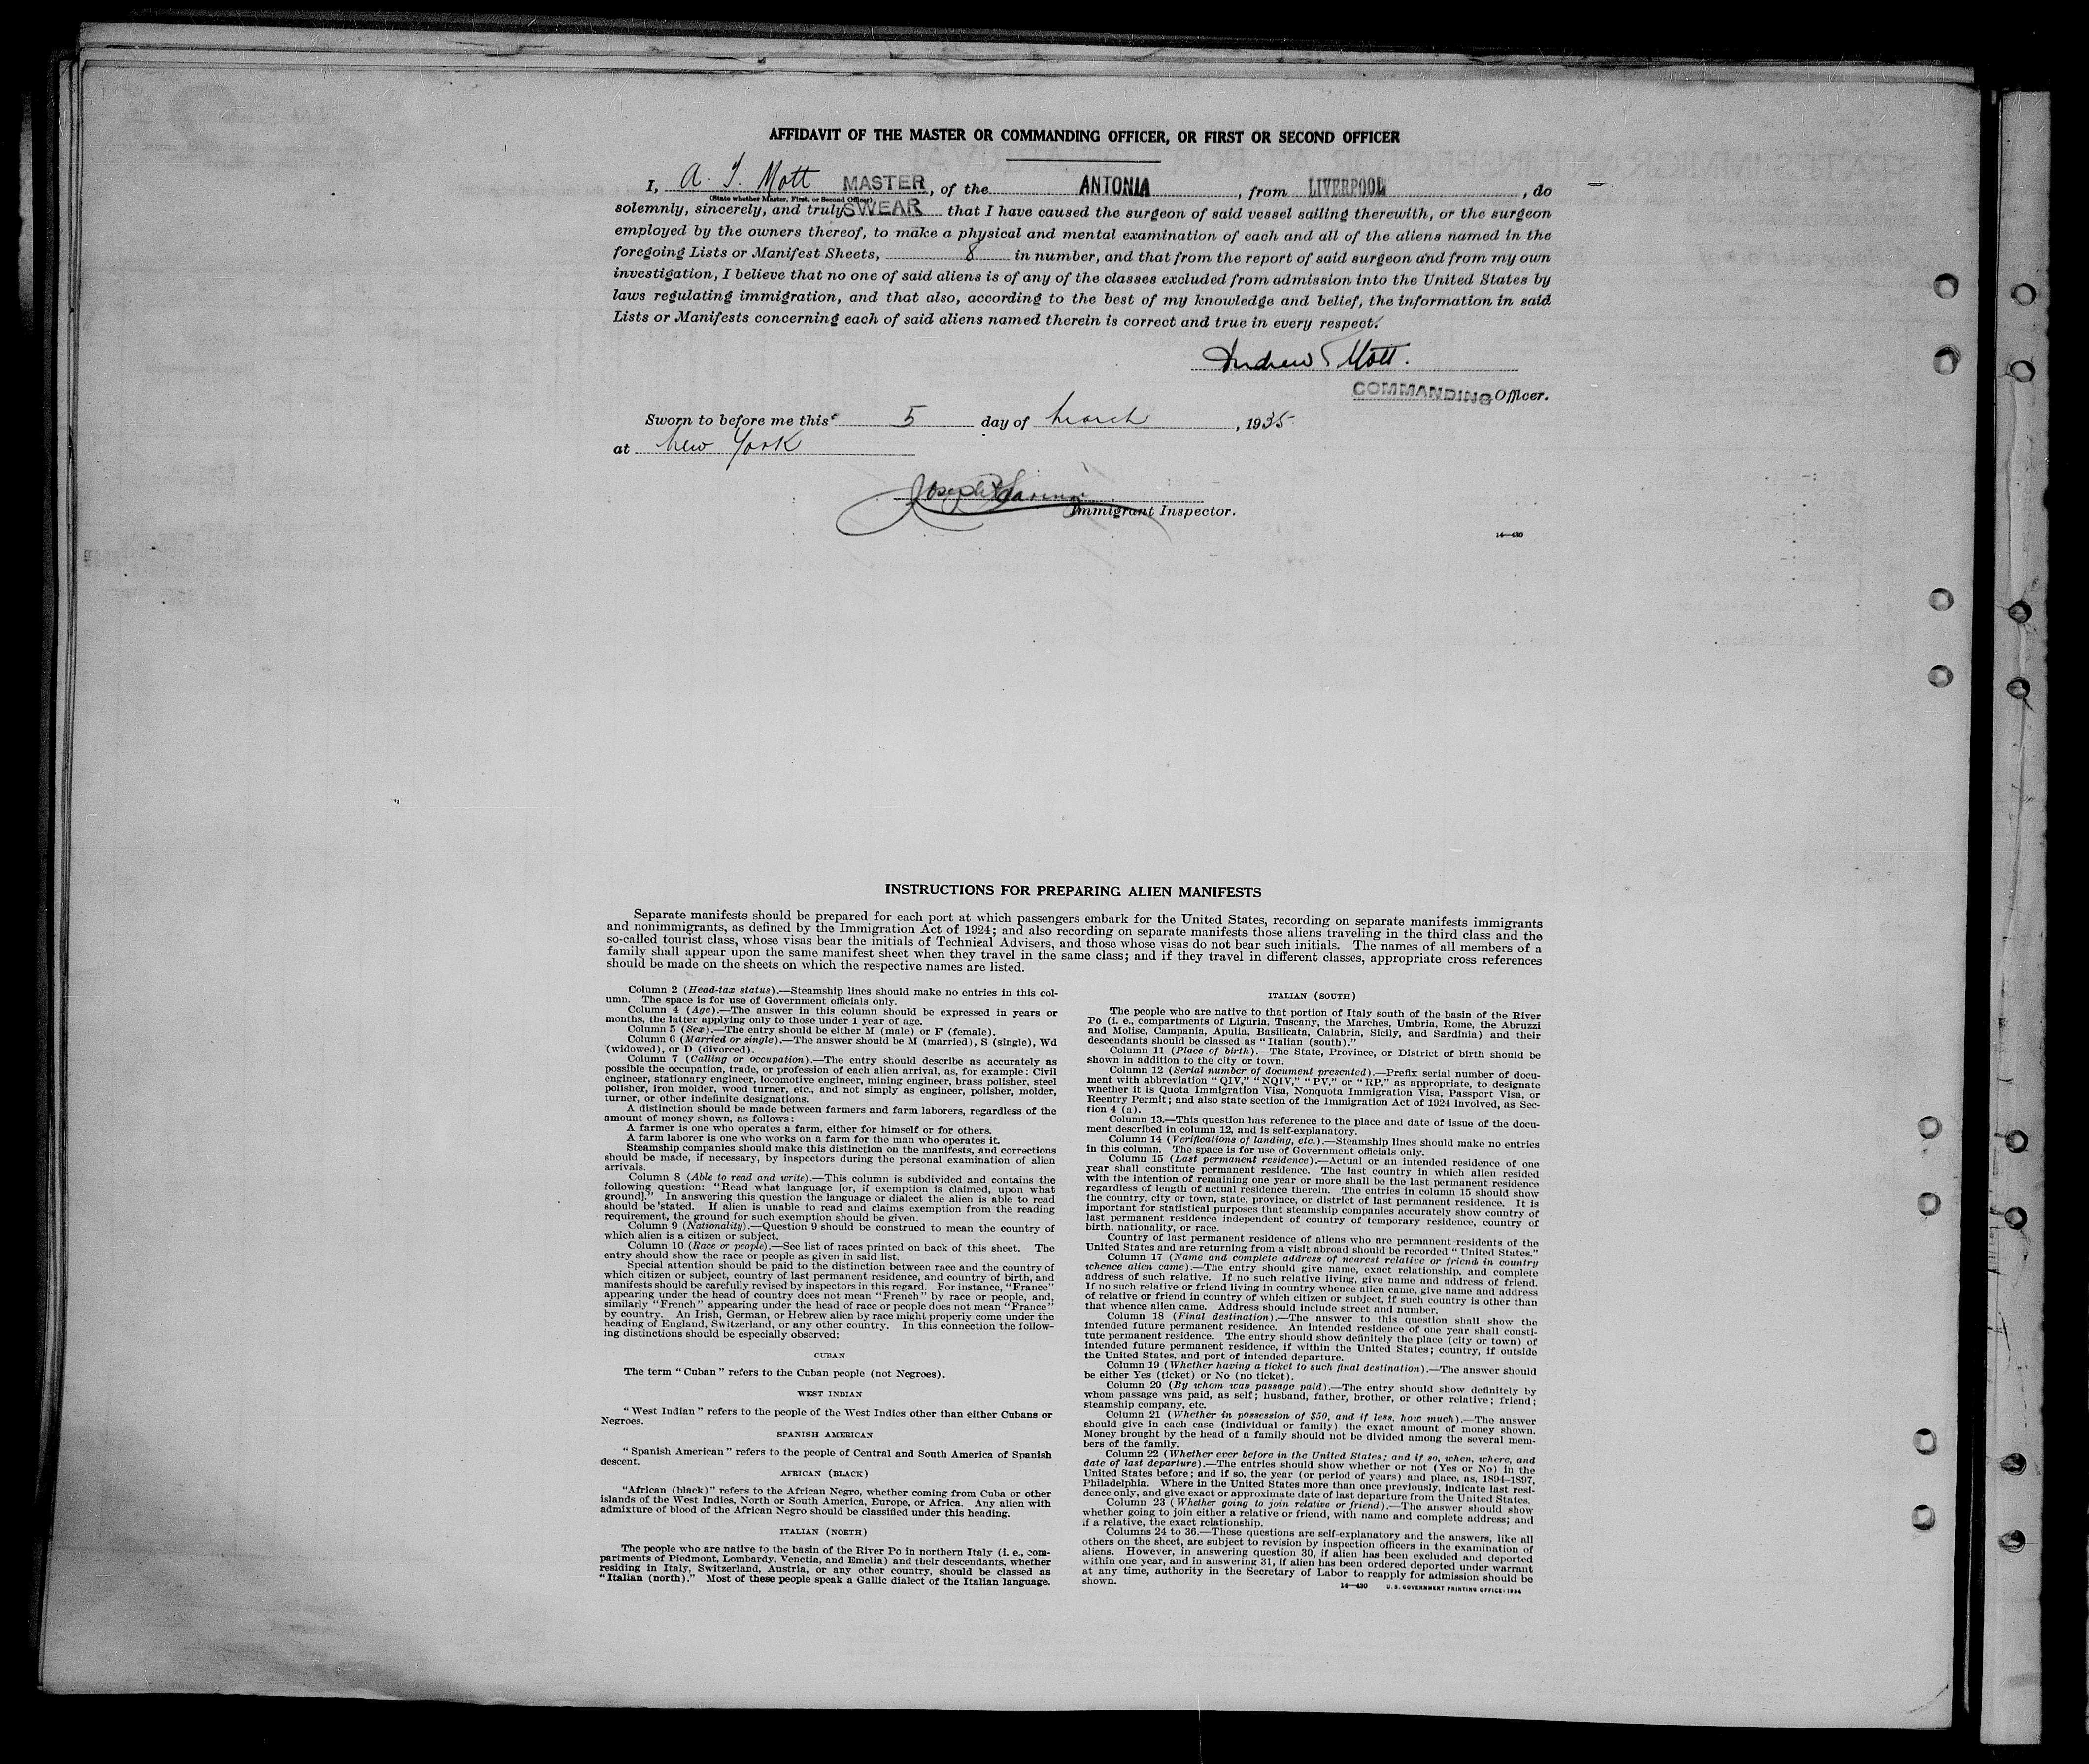 AFFIDAVIT OF THE MASTER OR COMMANDING OFFICER, OR FIRST OR SECOND OFFICER
I, A. T. Mott MASTER, of the ANTONIA, from LIVERPOOL, do
(State whether Master, First, or Second Officer)
solemnly, sincerely, and truly SWEAR that I have caused the surgeon of said vessel sailing therewith, or the surgeon
employed by the owners thereof, to make a physical and mental examination of each and all of the aliens named in the
foregoing Lists or Manifest Sheets, 8 in number, and that from the report of said surgeon and from my own
investigation, I believe that no one of said aliens is of any of the classes excluded from admission into the United States by
laws regulating immigration, and that also, according to the best of my knowledge and belief, the information in said
Lists or Manifests concerning each of said aliens named therein is correct and true in every respect.
Andrew T Mott.
COMMANDING Officer.
Sworn to before me this 5 day of March, 1935
at New York
Joseph
Immigrant Inspector.
14—430
INSTRUCTIONS FOR PREPARING ALIEN MANIFESTS
Separate manifests should be prepared for each port at which passengers embark for the United States, recording on separate manifests immigrants
and nonimmigrants, as defined by the Immigration Act of 1924; and also recording on separate manifests those aliens traveling in the third class and the
so-called tourist class, whose visas bear the initials of Technical Advisers, and those whose visas do not bear such initials. The names of all members of a
family shall appear upon the same manifest sheet when they travel in the same class; and if they travel in different classes, appropriate cross references
should be made on the sheets on which the respective names are listed.
Column 2 (Head-tax status).—Steamship lines should make no entries in this col-
umn. The space is for use of Government officials only.
Column 4 (Age).—The answer in this column should be expressed in years or
months, the latter applying only to those under 1 year of age.
Column 5 (Sex).—The entry should be either M (male) or F (female).
Column 6 (Married or single).—The answer should be M (married), S (single), Wd
(widowed), or D (divorced).
Column 7 (Calling or occupation).—The entry should describe as accurately as
possible the occupation, trade, or profession of each alien arrival, as, for example: Civil
engineer, stationary engineer, locomotive engineer, mining engineer, brass polisher, steel
polisher, iron molder, wood turner, etc., and not simply as engineer, polisher, molder,
turner, or other indefinite designations.
A distinction should be made between farmers and farm laborers, regardless of the
amount of money shown, as follows:
A farmer is one who operates a farm, either for himself or for others.
A farm laborer is one who works on a farm for the man who operates it.
Steamship companies should make this distinction on the manifests, and corrections
should be made, if necessary, by inspectors during the personal examination of alien
arrivals.
Column 8 (Able to read and write).—This column is subdivided and contains the
following question: "Read what language [or, if exemption is claimed, upon what
ground]." In answering this question the language or dialect the alien is able to read
should be stated. If alien is unable to read and claims exemption from the reading
requirement, the ground for such exemption should be given.
Column 9 (Nationality).—Question 9 should be construed to mean the country of
which alien is a citizen or subject.
Column 10 (Race or people).—See list of races printed on back of this sheet. The
entry should show the race or people as given in said list.
Special attention should be paid to the distinction between race and the country of
which citizen or subject, country of last permanent residence, and country of birth, and
manifests should be carefully revised by inspectors in this regard. For instance, "France"
appearing under the head of country does not mean "French" by race or people, and,
similarly "French" appearing under the head of race or people does not mean "France"
by country. An Irish, German, or Hebrew alien by race might properly come under the
heading of England, Switzerland, or any other country. In this connection the follow-
ing distinctions should be especially observed:
CUBAN
The term "Cuban" refers to the Cuban people (not Negroes).
WEST INDIAN
"West Indian" refers to the people of the West Indies other than either Cubans or
Negroes.
SPANISH AMERICAN
"Spanish American" refers to the people of Central and South America of Spanish
descent.
AFRICAN (BLACK)
"African (black)" refers to the African Negro, whether coming from Cuba or other
islands of the West Indies, North or South America, Europe, or Africa. Any alien with
admixture of blood of the African Negro should be classified under this heading.
ITALIAN (NORTH)
The people who are native to the basin of the River Po in northern Italy (i. e., com-
partments of Piedmont, Lombardy, Venetia, and Emelia) and their descendants, whether
residing in Italy, Switzerland, Austria, or any other country, should be classed as
"Italian (north)." Most of these people speak a Gallic dialect of the Italian language.
ITALIAN (SOUTH)
The people who are native to that portion of Italy south of the basin of the River
Po (i. e., compartments of Liguria, Tuscany, the Marches, Umbria, Rome, the Abruzzi
and Molise, Campania, Apulia, Basilicata, Calabria, Sicily, and Sardinia) and their
descendants should be classed as "Italian (south)."
Column 11 (Place of birth).—The State, Province, or District of birth should be
shown in addition to the city or town.
Column 12 (Serial number of document presented).—Prefix serial number of docu-
ment with abbreviation "QIV," "NQIV," "PV," or "RP," as appropriate, to designate
whether it is Quota Immigration Visa, Nonquota Immigration Visa, Passport Visa, or
Reentry Permit; and also state section of the Immigration Act of 1924 involved, as Sec-
tion 4 (a).
Column 13.—This question has reference to the place and date of issue of the docu-
ment described in column 12, and is self-explanatory.
Column 14 (Verifications of landing, etc.).—Steamship lines should make no entries
in this column. The space is for use of Government officials only.
Column 15 (Last permanent residence).—Actual or an intended residence of one
year shall constitute permanent residence. The last country in which alien resided
with the intention of remaining one year or more shall be the last permanent residence
regardless of length of actual residence therein. The entries in column 15 should show
the country, city or town, state, province, or district of last permanent residence. It is
important for statistical purposes that steamship companies accurately show country of
last permanent residence independent of country of temporary residence, country of
birth, nationality, or race.
Country of last permanent residence of aliens who are permanent residents of the
United States and are returning from a visit abroad should be recorded "United States."
Column 17 (Name and complete address of nearest relative or friend in country
whence alien came).—The entry should give name, exact relationship, and complete
address of such relative. If no such relative living, give name and address of friend.
If no such relative or friend living in country whence alien came, give name and address
of relative or friend in country of which citizen or subject, if such country is other than
that whence alien came. Address should include street and number.
Column 18 (Final destination).—The answer to this question shall show the
intended future permanent residence. An intended residence of one year shall consti-
tute permanent residence. The entry should show definitely the place (city or town) of
intended future permanent residence, if within the United States; country, if outside
the United States, and port of intended departure.
Column 19 (Whether having a ticket to such final destination).—The answer should
be either Yes (ticket) or No (no ticket).
Column 20 (By whom was passage paid).—The entry should show definitely by
whom passage was paid, as self; husband, father, brother, or other relative; friend;
steamship company, etc.
Column 21 (Whether in possession of $50, and if less, how much).—The answer
should give in each case (individual or family) the exact amount of money shown.
Money brought by the head of a family should not be divided among the several mem-
bers of the family.
Column 22 (Whether ever before in the United States; and if so, when, where, and
date of last departure).—The entries should show whether or not (Yes or No) in the
United States before; and if so, the year (or period of years) and place, as, 1894-1897,
Philadelphia. Where in the United States more than once previously, indicate last resi-
dence only, and give exact or approximate date of last departure from the United States.
Column 23 (Whether going to join relative or friend).—The answer should show
whether going to join either a relative or friend, with name and complete address; and
if a relative, the exact relationship.
Columns 24 to 36.—These questions are self-explanatory and the answers, like all
others on the sheet, are subject to revision by inspection officers in the examination of
aliens. However, in answering question 30, if alien has been excluded and deported
within one year, and in answering 31, if alien has been ordered deported under warrant
at any time, authority in the Secretary of Labor to reapply for admission should be
shown.
14—430 U. S. GOVERNMENT PRINTING OFFICE: 1934